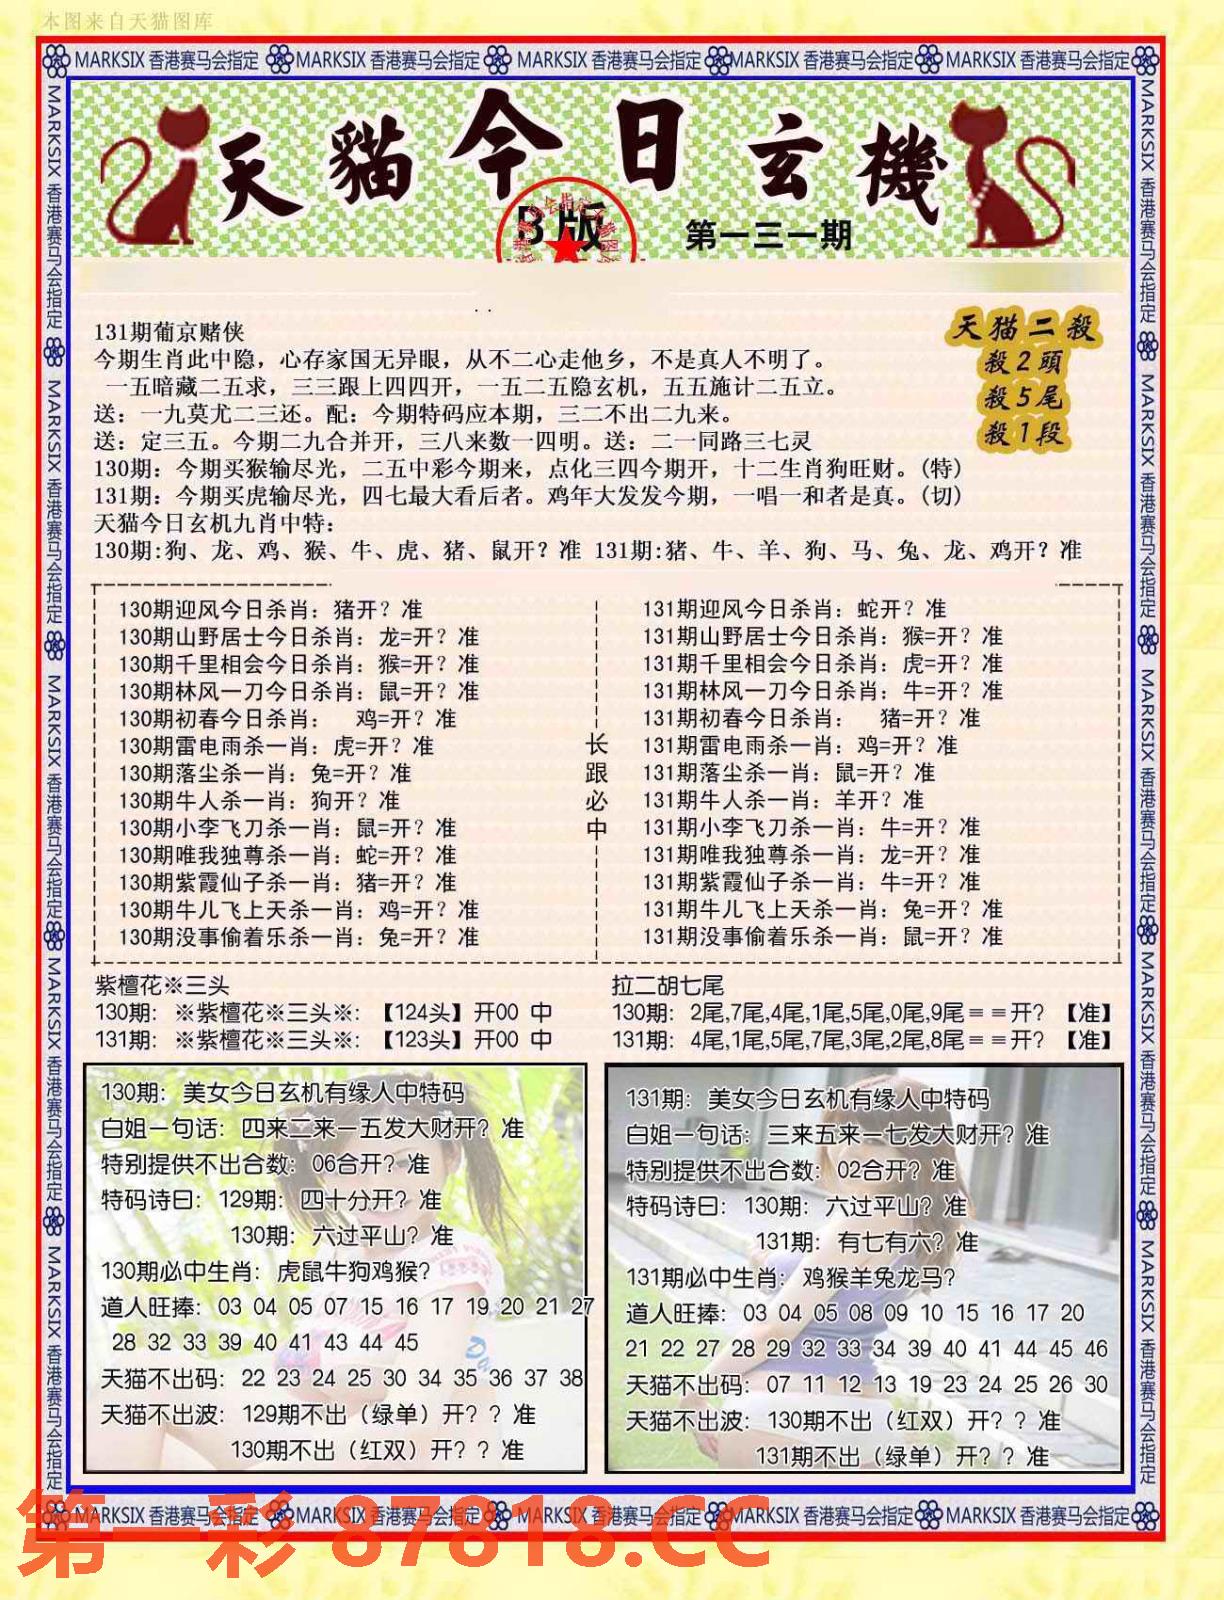 本图来自天猫图库
MARKSIX 香港赛马会指定 MARKSIX 香港赛马会指定 MARKSIX 香港赛马会指定 MARKSIX 香港赛马会指定 MARKSIX 香港赛马会指定
MARKSIX 香港赛马会指定 MARKSIX 香港赛马会指定 MARKSIX 香港赛马会指定 MARKSIX 香港赛马会指定 MARKSIX 香港赛马会指定
天貓今日玄機
B版
第一三一期
131期葡京赌侠
今期生肖此中隐，心存家国无异眼，从不二心走他乡，不是真人不明了。
一五暗藏二五求，三三跟上四四开，一五二五隐玄机，五五施计二五立。
送：一九莫尤二三还。配：今期特码应本期，三二不出二九来。
送：定三五。今期二九合并开，三八来数一四明。送：二一同路三七灵
130期：今期买猴输尽光，二五中彩今期来，点化三四今期开，十二生肖狗旺财。(特)
131期：今期买虎输尽光，四七最大看后者。鸡年大发发今期，一唱一和者是真。(切)
天猫今日玄机九肖中特：
130期:狗、龙、鸡、猴、牛、虎、猪、鼠开？准 131期:猪、牛、羊、狗、马、兔、龙、鸡开？准
天猫二殺
殺2頭
殺5尾
殺1段
130期迎风今日杀肖：猪开？准
130期山野居士今日杀肖：龙=开？准
130期千里相会今日杀肖：猴=开？准
130期林风一刀今日杀肖：鼠=开？准
130期初春今日杀肖： 鸡=开？准
130期雷电雨杀一肖：虎=开？准
130期落尘杀一肖：兔=开？准
130期牛人杀一肖：狗开？准
130期小李飞刀杀一肖：鼠=开？准
130期唯我独尊杀一肖：蛇=开？准
130期紫霞仙子杀一肖：猪=开？准
130期牛儿飞上天杀一肖：鸡=开？准
130期没事偷着乐杀一肖：兔=开？准
长跟必中
131期迎风今日杀肖：蛇开？准
131期山野居士今日杀肖：猴=开？准
131期千里相会今日杀肖：虎=开？准
131期林风一刀今日杀肖：牛=开？准
131期初春今日杀肖： 猪=开？准
131期雷电雨杀一肖：鸡=开？准
131期落尘杀一肖：鼠=开？准
131期牛人杀一肖：羊开？准
131期小李飞刀杀一肖：牛=开？准
131期唯我独尊杀一肖：龙=开？准
131期紫霞仙子杀一肖：牛=开？准
131期牛儿飞上天杀一肖：兔=开？准
131期没事偷着乐杀一肖：鼠=开？准
紫檀花※三头
130期：※紫檀花※三头※：【124头】开00 中
131期：※紫檀花※三头※：【123头】开00 中
拉二胡七尾
130期：2尾,7尾,4尾,1尾,5尾,0尾,9尾＝＝开？【准】
131期：4尾,1尾,5尾,7尾,3尾,2尾,8尾＝＝开？【准】
130期：美女今日玄机有缘人中特码
白姐一句话：四来二来一五发大财开？准
特别提供不出合数：06合开？准
特码诗曰：129期：四十分开？准
130期：六过平山？准
130期必中生肖：虎鼠牛狗鸡猴？
道人旺捧：03 04 05 07 15 16 17 19 20 21 27
28 32 33 39 40 41 43 44 45
天猫不出码：22 23 24 25 30 34 35 36 37 38
天猫不出波：129期不出（绿单）开？？准
130期不出（红双）开？？准
131期：美女今日玄机有缘人中特码
白姐一句话：三来五来一七发大财开？准
特别提供不出合数：02合开？准
特码诗曰：130期：六过平山？准
131期：有七有六？准
131期必中生肖：鸡猴羊兔龙马？
道人旺捧：03 04 05 08 09 10 15 16 17 20
21 22 27 28 29 32 33 34 39 40 41 44 45 46
天猫不出码：07 11 12 13 19 23 24 25 26 30
天猫不出波：130期不出（红双）开？？准
131期不出（绿单）开？？准
MARKSIX 香港赛马会指定 MARKSIX 香港赛马会指定 MARKSIX 香港赛马会指定 MARKSIX 香港赛马会指定 MARKSIX 香港赛马会指定
MARKSIX 香港赛马会指定 MARKSIX 香港赛马会指定 MARKSIX 香港赛马会指定 MARKSIX 香港赛马会指定 MARKSIX 香港赛马会指定
第一彩 87818.CC